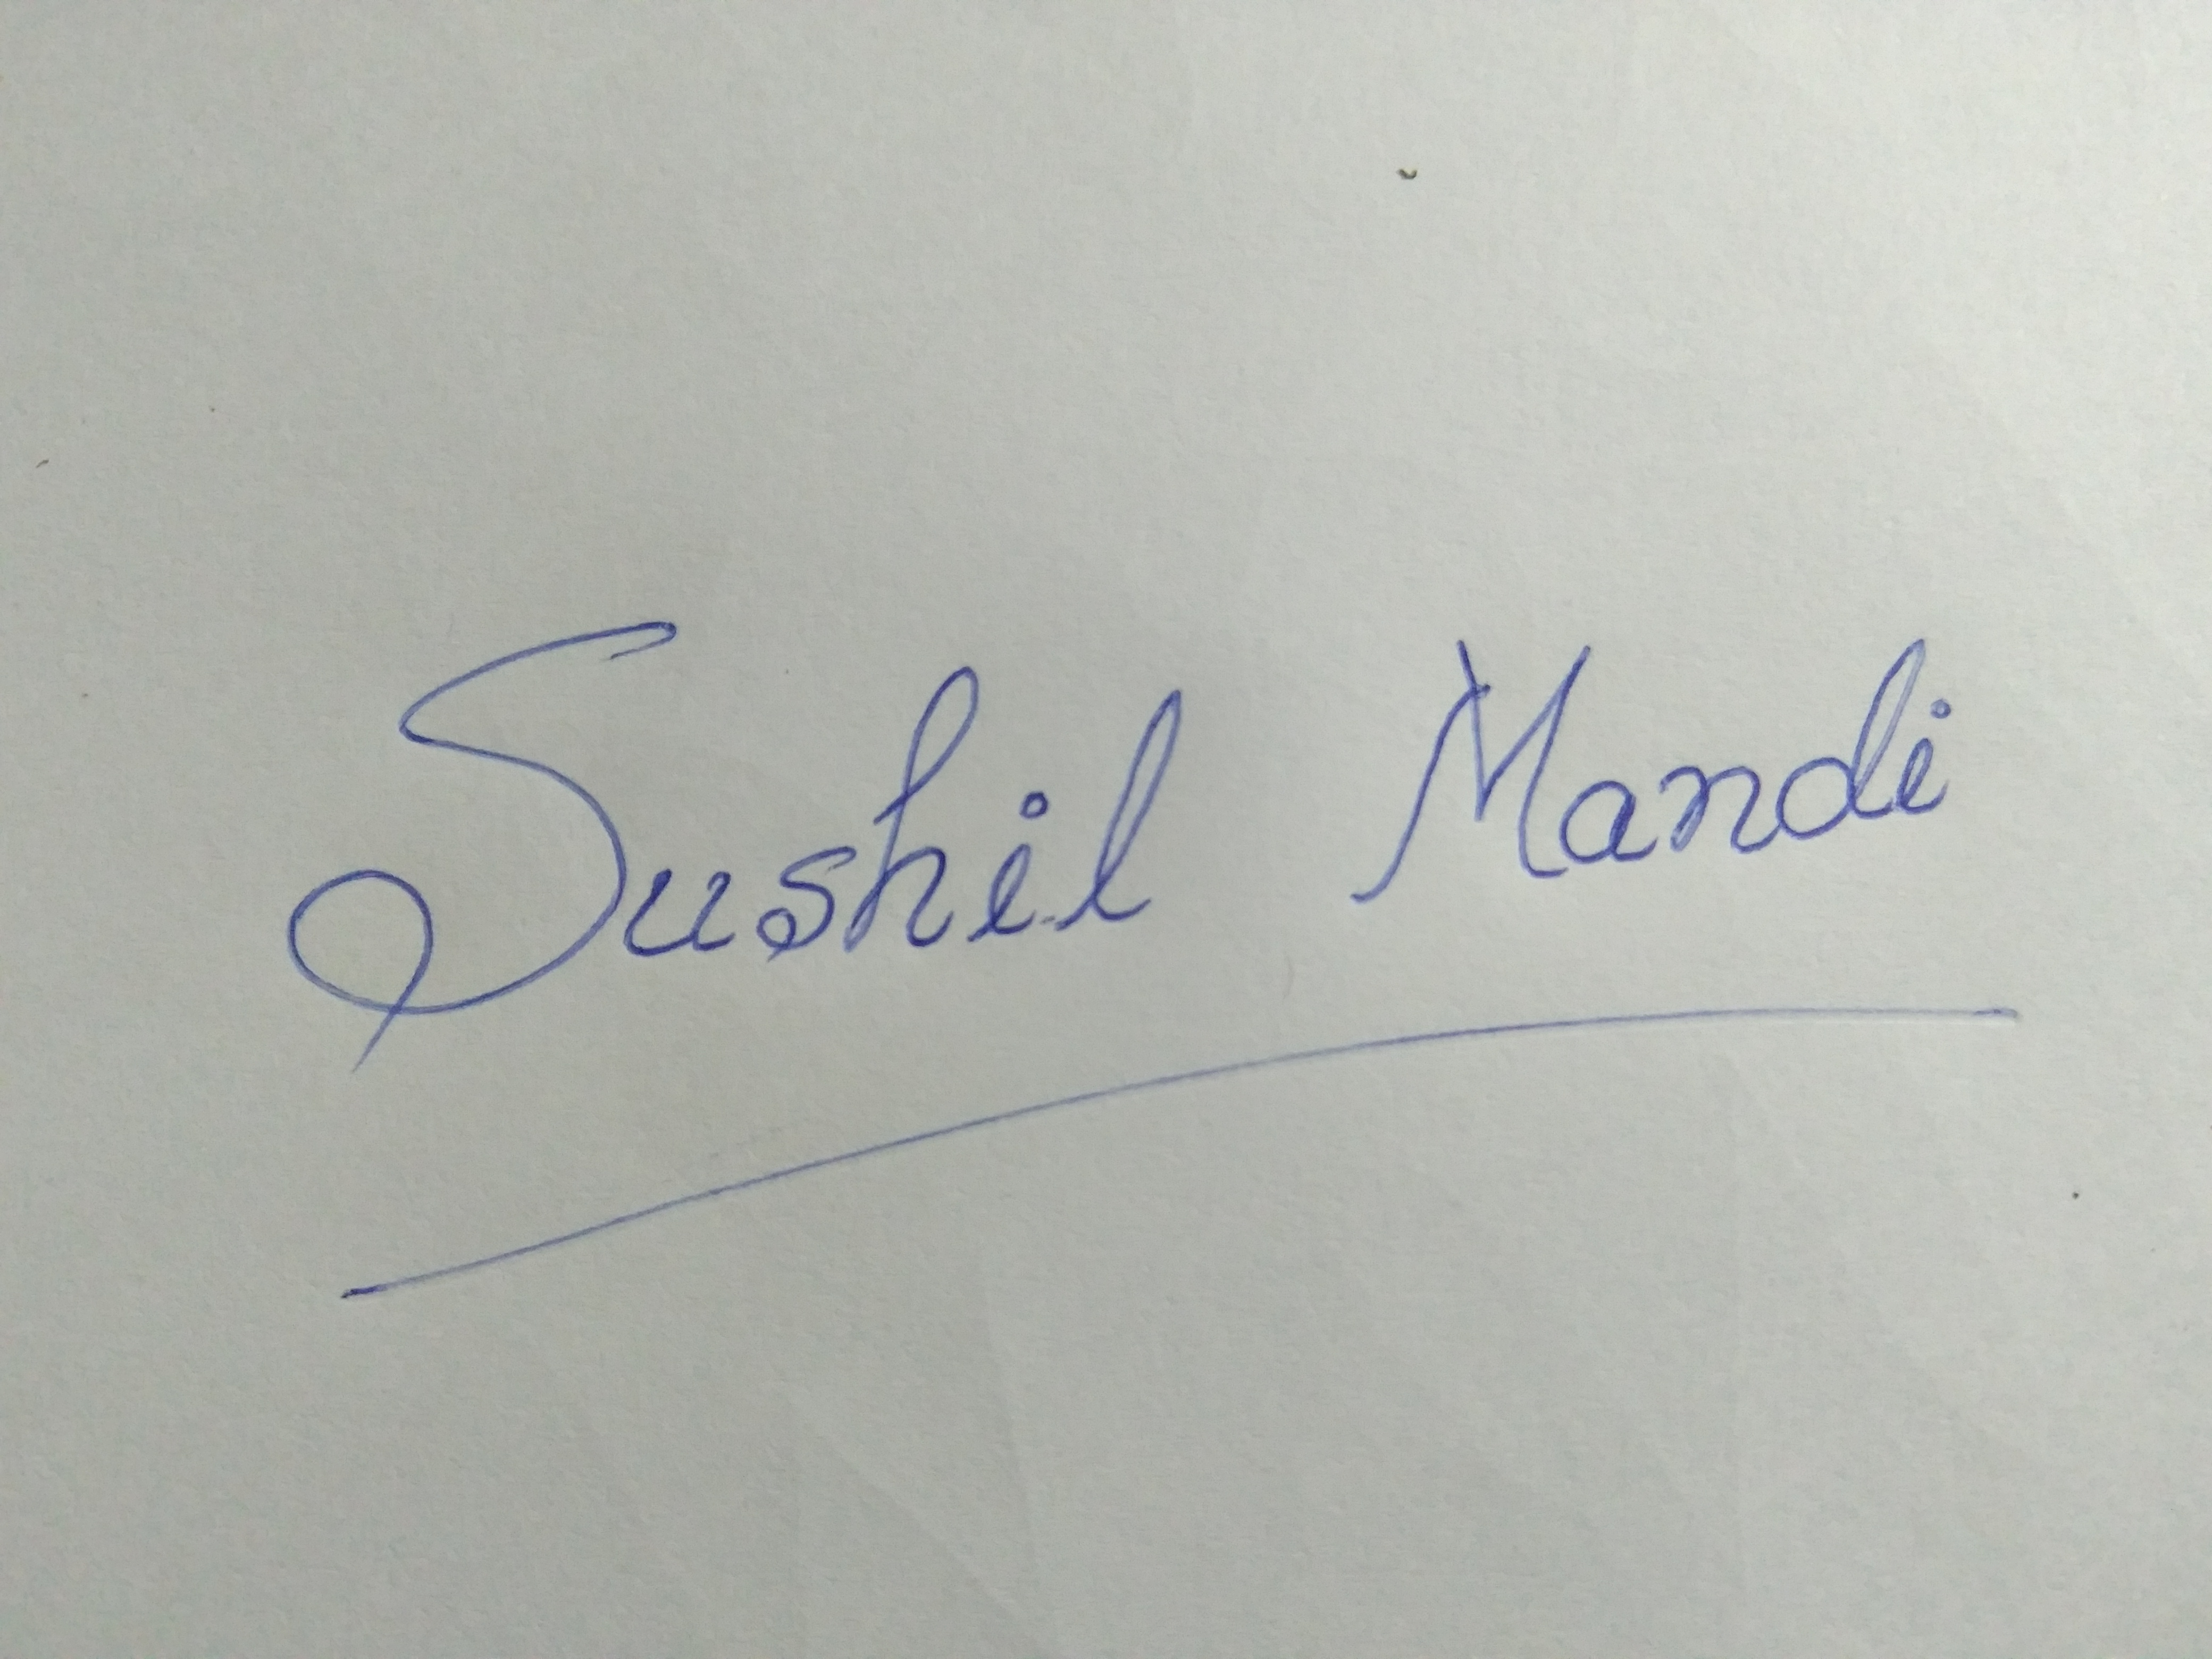 Sushil Mandi